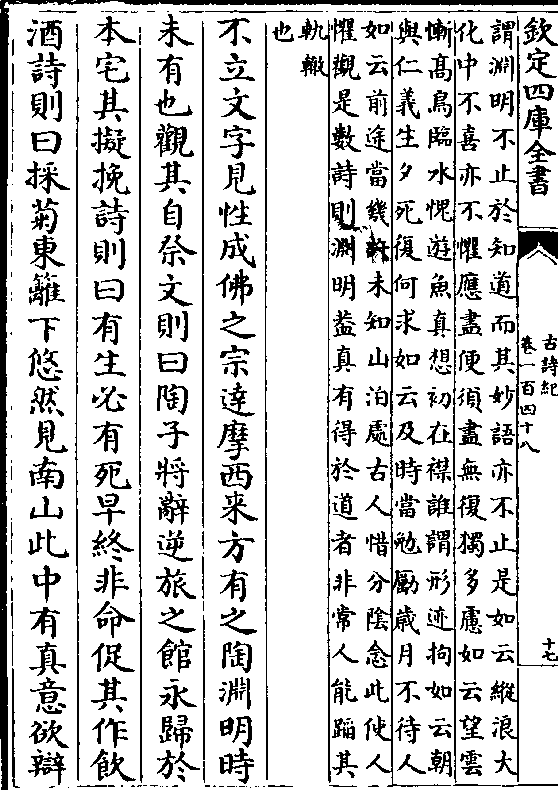 欽定四庫全書
古詩紀
卷一百四十八
十七
謂淵明不止於知道而其妙語亦不止是如云縱浪大
化中不喜亦不懼應盡便須盡無復獨多慮如云望雲
慚髙鳥臨水愧遊魚真想初在襟誰謂形迹拘如云朝
與仁義生夕死復何求如云及時當勉勵歲月不待人
如云前途當幾許未知山泊處古人惜分陰念此使人
懼觀是數詩則淵明葢真有得於道者非常人能蹈其
軌轍
也
不立文字見性成佛之宗達摩西来方有之陶淵明時
未有也觀其自祭文則曰陶子將辭逆旅之館永歸於
本宅其擬挽詩則曰有生必有死早終非命促其作飲
酒詩則曰採菊東籬下悠然見南山此中有真意欲辯